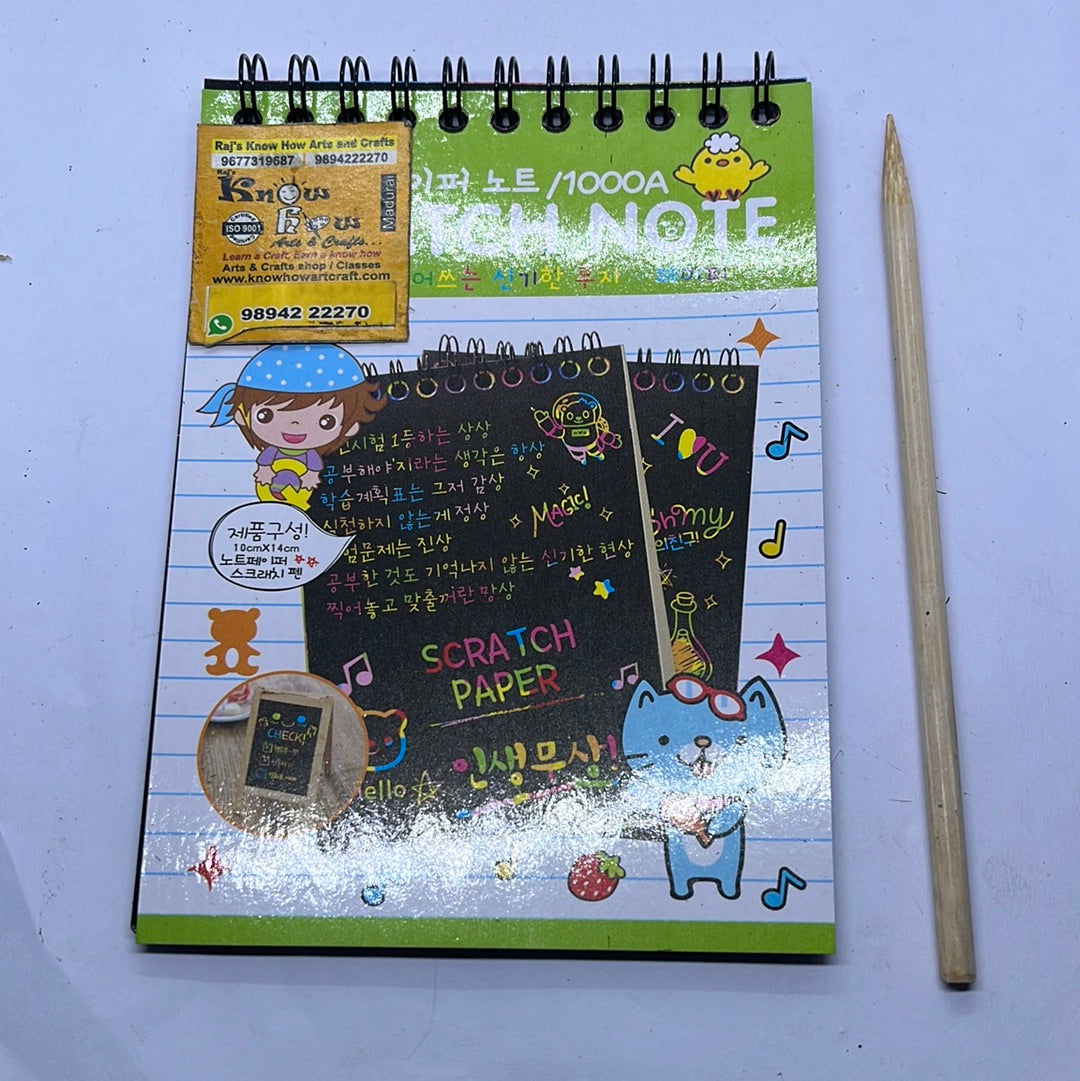 Raj's Know How Arts and Crafts
9677319687 9894222270
Raj's
Know
How
Madurai
Certified
ISO 9001
Arts & Crafts...
Learn a Craft, Earn a know how
Arts & Crafts shop / Classes
www.knowhowartcraft.com
98942 22270
이퍼 노트 /1000A
TCH NOTE
어쓰는 신기한
시험 1등하는 상상
공부해야지라는 생각은 항상
학습계획표는 그저 감상
실천하지 않는게 정상
험문제는 진상
공부한 것도 기억나지 않는 신기한 현상
찍어놓고 맞출꺼란 망상
MAGIC!
I U
Oh my
SCRATCH
PAPER
인생무상!
ello
제품구성!
10cmX14cm
노트페이퍼
스크래치 펜
CHECK!